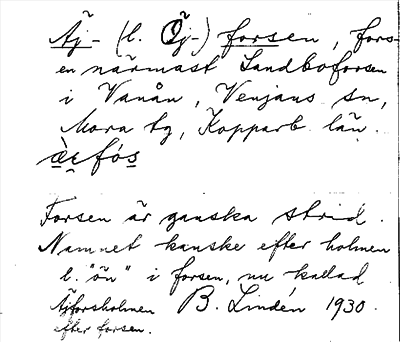 Äj- (l. Öj-) forsen, fors-
en närmast Landboforsen
i Vanån, Venjans sn,
Mora tg, Kopparb. län.
fós
Forsen är ganska strid.
Namnet kanske efter holmen
l. "ön" i forsen, nu kallad
Äjforsholmen B. Lindén 1930.
efter forsen.